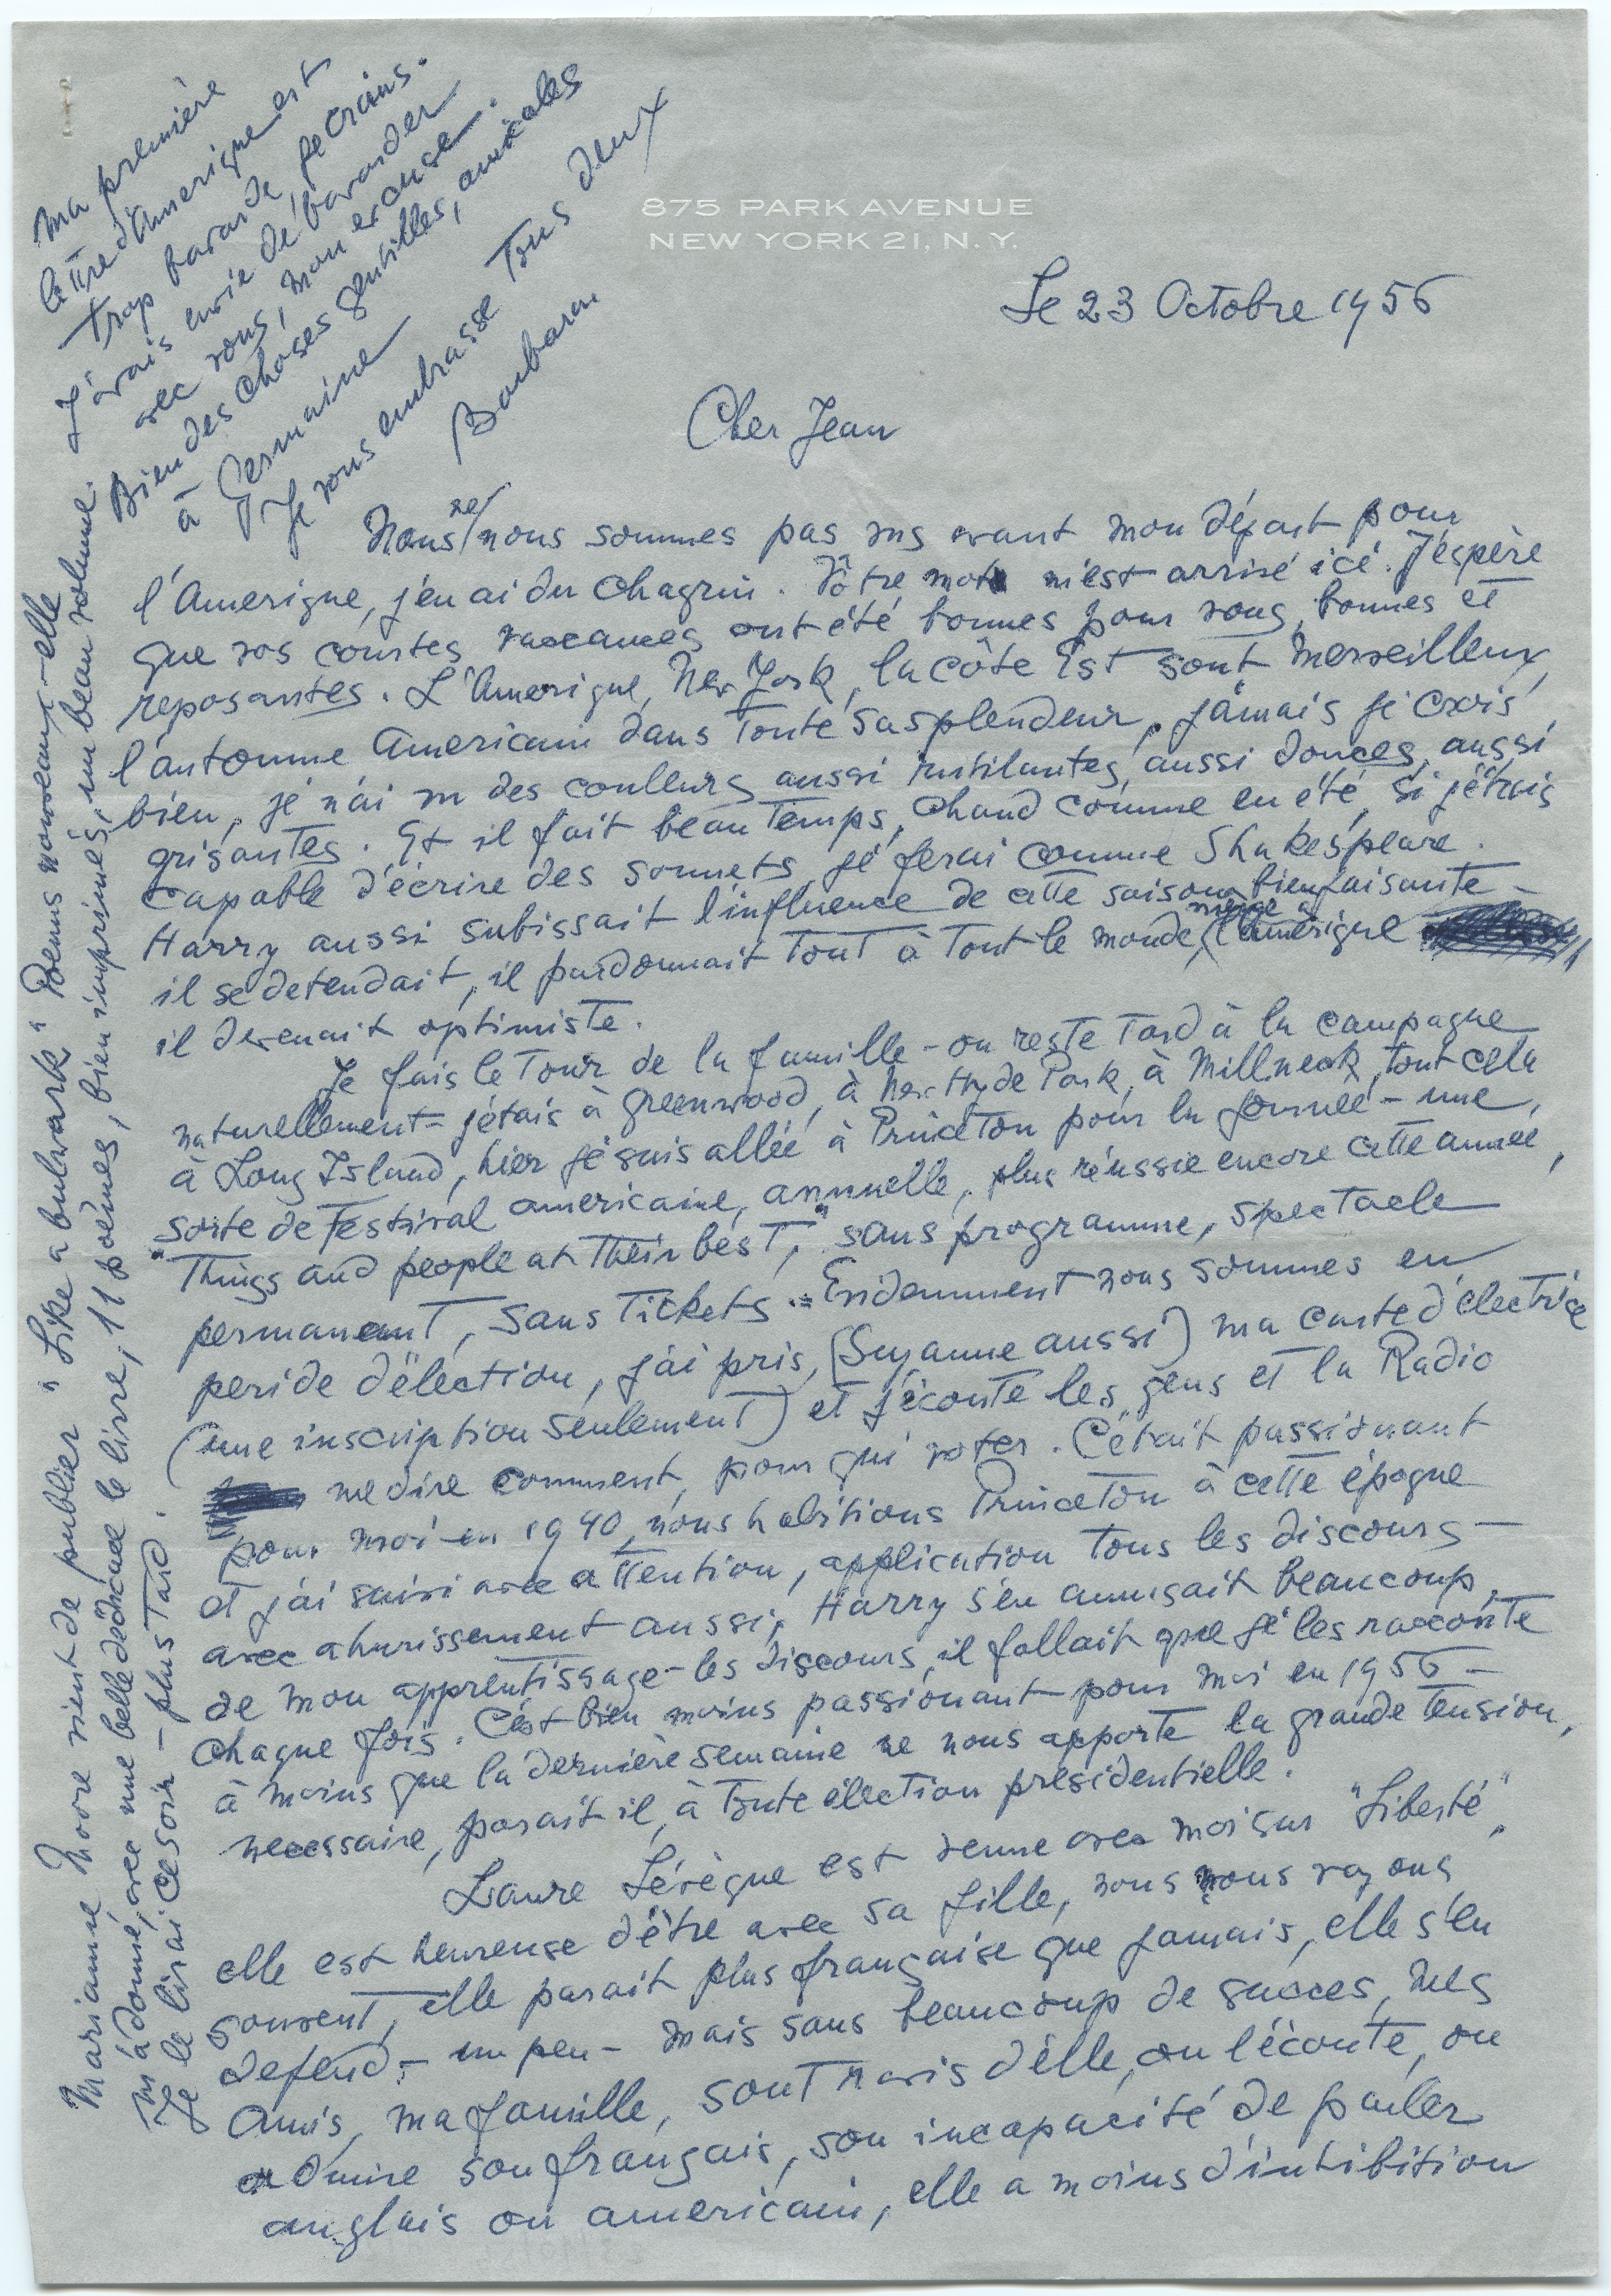 875 PARK AVENUE
NEW YORK 21, N.Y.
Le 23 Octobre 1956
Cher Jean
Nous ne nous sommes pas vus avant mon départ pour
l'Amerique, j'en ai du chagrin. Vôtre mot m'est arrivé ici. J'espère
que vos courtes vaccances ont été bonnes pour vous, bonnes et
reposantes. L'Amerique, New York, la côte Est sont merveilleux,
l'automne Americain dans toute sa splendeur, jamais je crois,
bien, je n'ai vu des coulleurs aussi rutilantes, aussi douces, aussi
grisantes. Et il fait beau temps, chaud comme en été, si j'étais
capable d'écrire des sonnets, je ferai comme Shakespeare.
Harry aussi subissait l'influence de cette saison bienfaisante –
il se detendait, il pardonnait tout à tout le monde, même à l'Amerique
il devenait optimiste.
Je fais le tour de la famille – on reste tard à la campagne
naturellement – j'étais à Greenwood, à New Hyde Park, à Millneck, tout cela
à Long Island, hier je suis allée à Princeton pour la journée – une,
sorte de Festival americaine, annuelle, plus réussie encore cette année,
"Things and people at their best," sans programme, spectacle
permanant, sans tickets. – Evidemment nous sommes en
peride d'élection, j'ai pris, (Suzanne aussi) ma carte d'électrice
(une inscription seulement) et j'écoute les gens et la Radio
me dire comment, pour qui voter. C'était passionant
pour moi en 1940, nous habitions Princeton à cette époque
et j'ai suivi avec attention, application tous les discours –
avec ahurissement aussi, Harry s'en amusait beaucoup,
de mon apprentissage – les discours, il fallait que je les racconte
chaque fois. C'est bien moins passionant pour moi en 1956 –
à moins que la dernière semaine ne nous apporte la grande tension,
necessaire, parait il, à toute élection presidentielle.
Laure Lévèque est venue avec moi sur "Liberté",
elle est heureuse d'être avec sa fille, nous nous voyons
souvent, elle parait plus française que jamais, elle s'en
defend – un peu – mais sans beaucoup de succes, mes
amis, ma famille, sont ravis d'elle, on l'écoute, on
admire son français, son incapacité de parler
anglais ou americain, elle a moins d'inhibition
Marianne Moore vient de publier "Like a bulwark" Poems nouveaux – elle
m'a donné, avec une belle dédicace le livre, 11 poèmes, bien imprimés, un beau volume.
Je le lirai ce soir – plus tard.
Ma première
lettre d'Amerique est
trop bavarde je crains.
J'avais envie de bavarder
avec vous, mon excuse.
Bien des choses gentilles, amicales
à Germaine
Je vous embrasse tous deux
Barbara